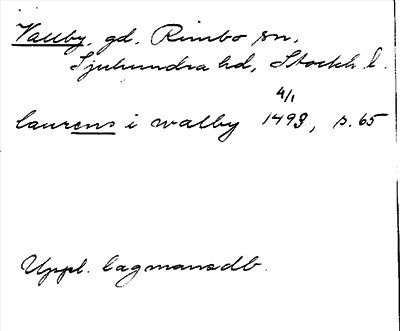 Vallby, gd, Rimbo sn,
Sjuhundra hd, Stockh. l.
4/1
laurens i walby 1493, s. 65
Uppl. lagmansdb.